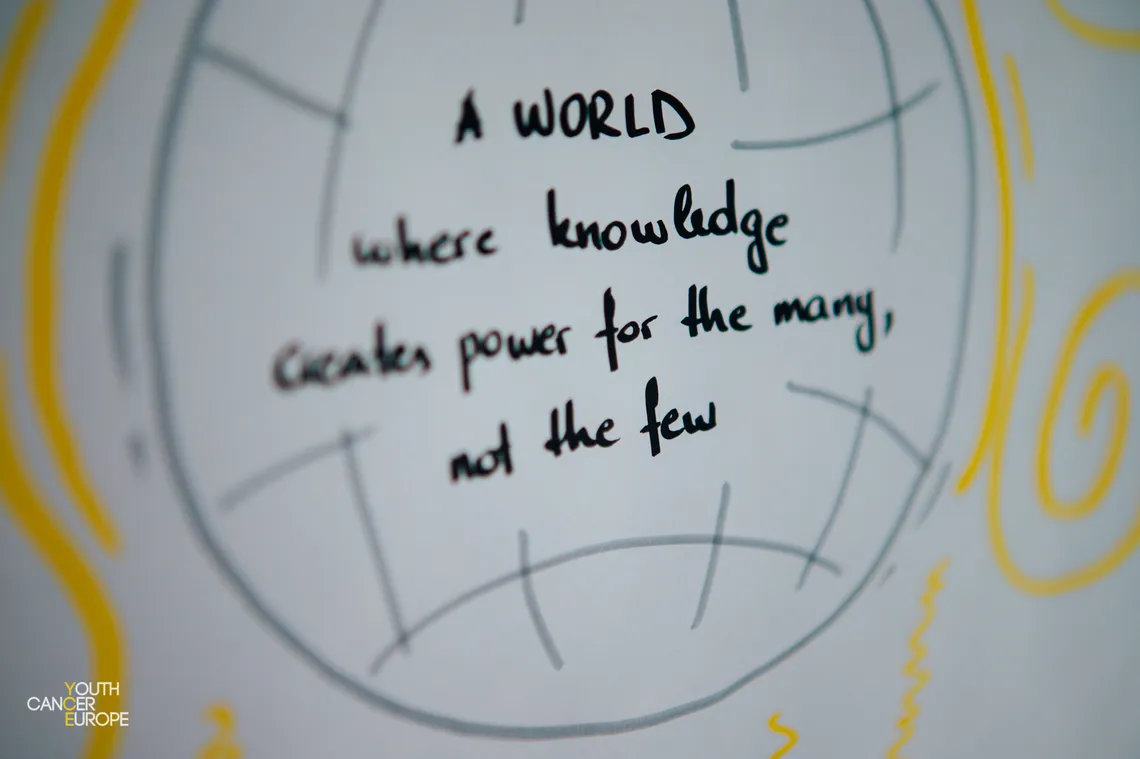 A WORLD
where knowledge
creates power for the many,
not the few
YOUTH
CANCER
EUROPE